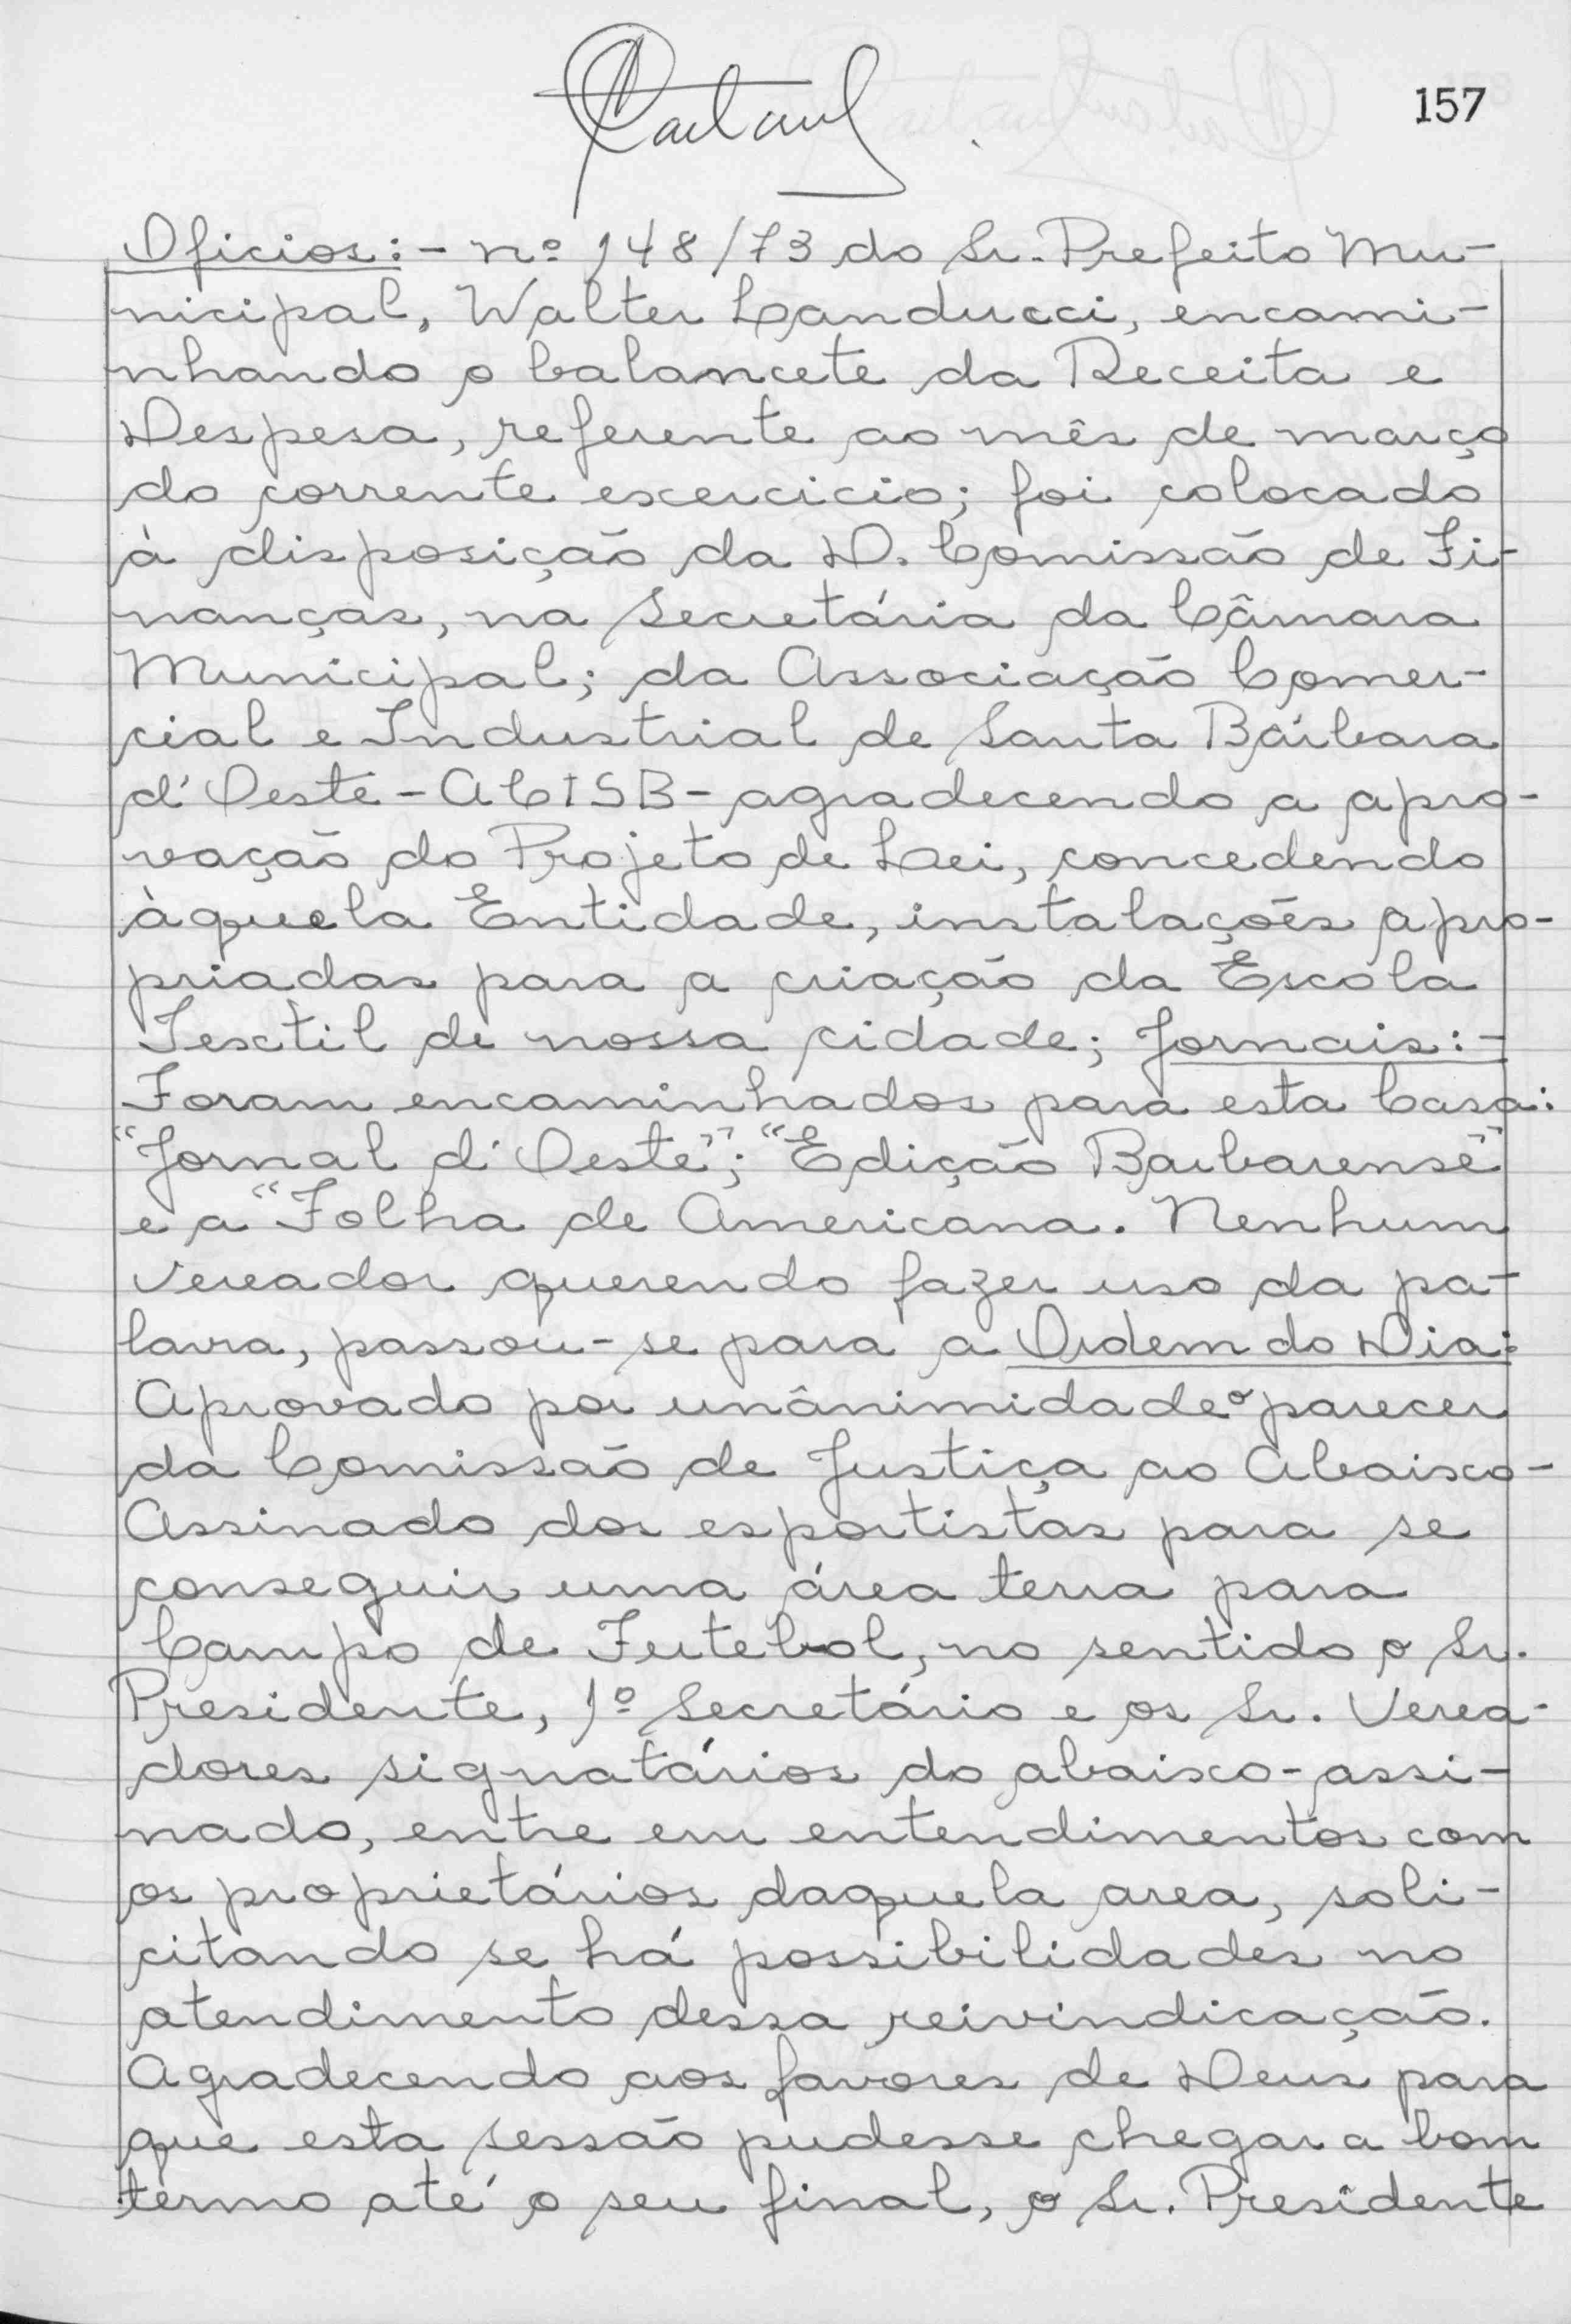 157
Oficios:- nº 148/73 do Sr. Prefeito Mu-
nicipal, Walter Landucci, encami-
nhando o balancete da Receita e
Despesa, referente ao mês de março
do corrente exercicio; foi colocado
à disposição da D. Comissão de Fi-
nanças, na Secretária da Câmara
Municipal; da Associação Comer-
cial e Industrial de Santa Bárbara
d'Oeste - ACISB - agradecendo a apro-
vação do Projeto de Lei, concedendo
àquela Entidade, instalações apro-
priadas para a criação da Escola
Textil de nossa cidade; Jornais:-
Foram encaminhados para esta Casa:
"Jornal d'Oeste"; "Edição Barbarense"
e a "Folha de Americana. Nenhum
Vereador querendo fazer uso da pa-
lavra, passou-se para a Ordem do Dia:
Aprovado por unânimidade o parecer
da Comissão de Justiça ao Abaixo-
Assinado dos esportistas para se
conseguir uma área terra para
Campo de Futebol, no sentido o Sr.
Presidente, 1º Secretário e os Sr. Verea-
dores signatários do abaixo-assi-
nado, entre em entendimentos com
os proprietários daquela area, soli-
citando se há possibilidades no
atendimento dessa reivindicação.
Agradecendo aos favores de Deus para
que esta sessão pudesse chegar a bom
termo até o seu final, o Sr. Presidente